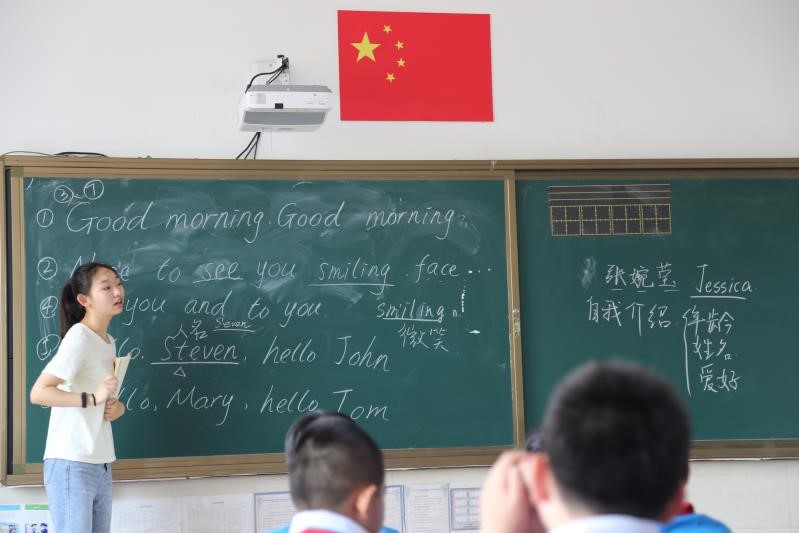 ③~⑦
① Good morning. Good morning.
② to see you smiling face...
④ you and to you. smiling.
人名 Steven 微笑
⑤ Steven, hello John
Mary, hello Tom
张婉莹 Jessica
自我介绍. 年龄
姓名.
爱好